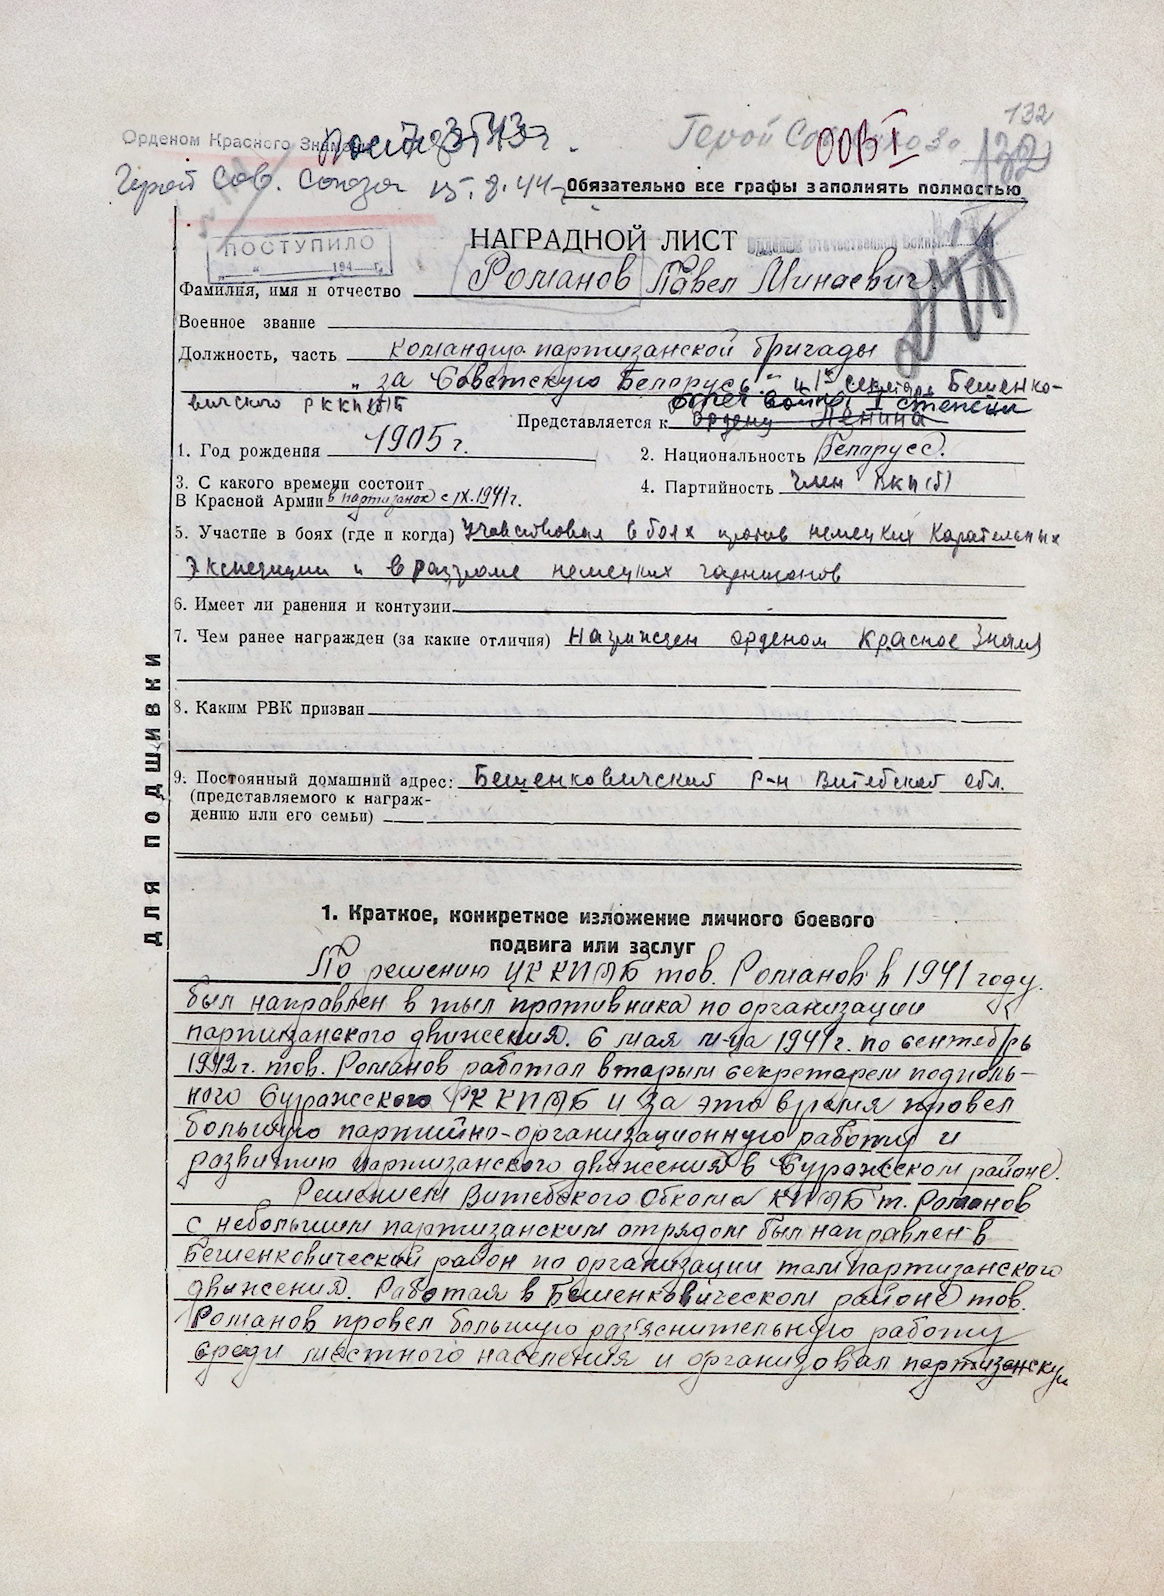 132
Орденом Красного Знамени
Герой Сов. Союза
ООВ I
132
Герой Сов. Союза 15.8.44
Обязательно все графы заполнять полностью
ПОСТУПИЛО
194 г.
НАГРАДНОЙ ЛИСТ
Орденом Отечественной Войны
Фамилия, имя и отчество Романов Павел Минаевич
Военное звание
Должность, часть командир партизанской бригады
„за Советскую Белорусь" и 1й секретарь Бешенко-
вичского РККП(б)Б
орден войны I степени
Представляется к ордену Ленина
1. Год рождения 1905 г.
2. Национальность Белорусс.
3. С какого времени состоит
В Красной Армии в партизанах с IX.1941 г.
4. Партийность член ВКП(б)
5. Участие в боях (где и когда) Участвовал в боях против немецких карательных
экспедиции и в разгроме немецких гарнизонов
6. Имеет ли ранения и контузии
7. Чем ранее награжден (за какие отличия) Награжден орденом Красное Знамя
8. Каким РВК призван
9. Постоянный домашний адрес: Бешенковичский р-н Витебской обл.
(представляемого к награж-
дению или его семьи)
ДЛЯ ПОДШИВКИ
1. Краткое, конкретное изложение личного боевого
подвига или заслуг
По решению ЦК КП(б)Б тов. Романов в 1941 году.
был направлен в тыл противника по организации
партизанского движения. С мая м-ца 1941 г. по сентябрь
1942 г. тов. Романов работал вторым секретарем подполь-
ного Суражсского РККП(б)Б и за это время провел
большую партийно-организационную работу и
развитию партизанского движения в Суражсском районе.
Решением Витебского Обкома КП(б)Б т. Романов
с небольшим партизанским отрядом был направлен в
Бешенковический район по организации там партизанского
движения. Работая в Бешенковическом районе тов.
Романов провел большую раз'яснительную работу
среди местного населения и организовал партизанску